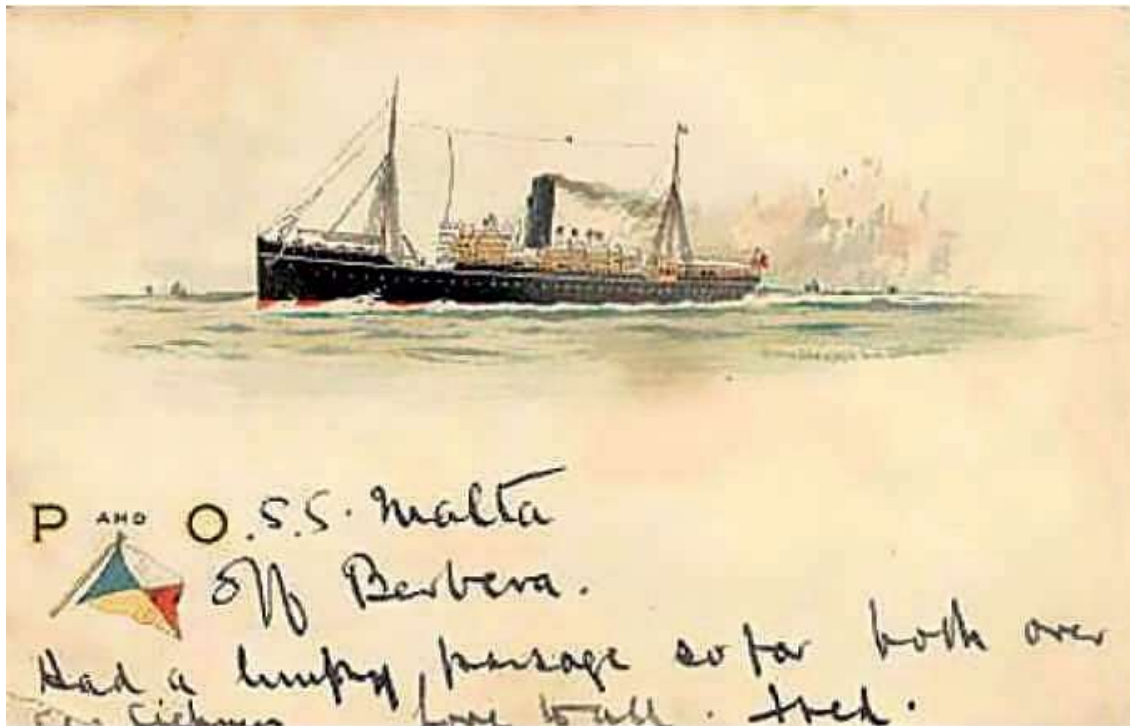 P AND O. S.S. Malta
off Berbera.
Had a lumpy passage so far both over
sea sickness Love to all. Fred.